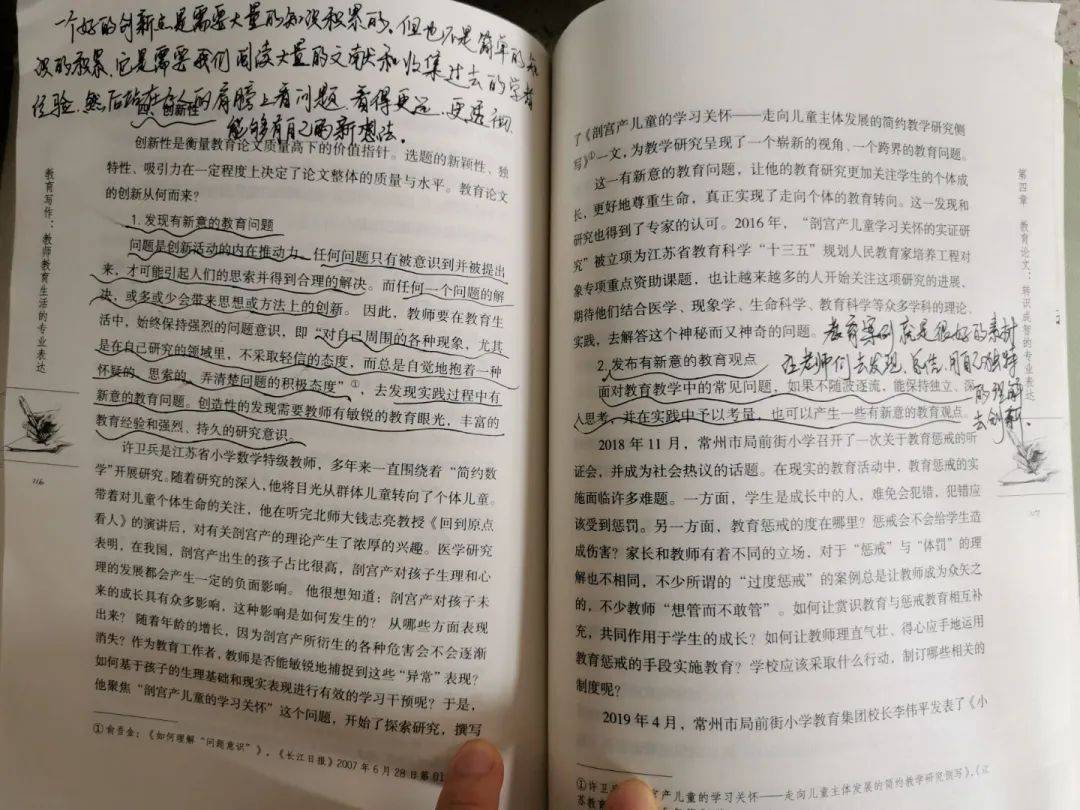 一个好的创新点是需要大量的知识积累的、但也不是简单的知
识的积累、它是需要我们阅读大量的文献和收集过去的学者
经验、然后站在名人的肩膀上看问题、看得更远、更透彻、
能够有自己的新想法、
创新性
创新性是衡量教育论文质量高下的价值指针。选题的新颖性、独
特性、吸引力在一定程度上决定了论文整体的质量与水平。教育论文
的创新从何而来?
1. 发现有新意的教育问题
问题是创新活动的内在推动力。任何问题只有被意识到并被提出
来,才可能引起人们的思索并得到合理的解决。而任何一个问题的解
决,或多或少会带来思想或方法上的创新。因此,教师要在教育生
活中,始终保持强烈的问题意识,即“对自己周围的各种现象,尤其
是在自己研究的领域里,不采取轻信的态度,而总是自觉地抱着一种
怀疑的、思索的、弄清楚问题的积极态度”①,去发现实践过程中有
新意的教育问题。创造性的发现需要教师有敏锐的教育眼光,丰富的
教育经验和强烈、持久的研究意识。
许卫兵是江苏省小学数学特级教师,多年来一直围绕着“简约数
学”开展研究。随着研究的深入,他将目光从群体儿童转向了个体儿童。
带着对儿童个体生命的关注,他在听完北师大钱志亮教授《回到原点
看人》的演讲后,对有关剖宫产的理论产生了浓厚的兴趣。医学研究
表明,在我国,剖宫产出生的孩子占比很高,剖宫产对孩子生理和心
理的发展都会产生一定的负面影响。他很想知道:剖宫产对孩子未
来的成长具有众多影响,这种影响是如何发生的?从哪些方面表现
出来?随着年龄的增长,因为剖宫产所衍生的各种危害会不会逐渐
消失?作为教育工作者,教师是否能敏锐地捕捉到这些“异常”表现?
如何基于孩子的生理基础和现实表现进行有效的学习干预呢?于是,
他聚焦“剖宫产儿童的学习关怀”这个问题,开始了探索研究,撰写
①俞吾金:《如何理解“问题意识”》,《长江日报》2007年6月28日第01
教育写作:教师教育生活的专业表达
116
了《剖宫产儿童的学习关怀——走向儿童主体发展的简约教学研究侧
写》①一文,为教学研究呈现了一个崭新的视角、一个跨界的教育问题。
这一有新意的教育问题,让他的教育研究更加关注学生的个体成
长,更好地尊重生命,真正实现了走向个体的教育转向。这一发现和
研究也得到了专家的认可。2016年,“剖宫产儿童学习关怀的实证研
究”被立项为江苏省教育科学“十三五”规划人民教育家培养工程对
象专项重点资助课题,也让越来越多的人开始关注这项研究的进展,
期待他们结合医学、现象学、生命科学、教育科学等众多学科的理论、
实践,去解答这个神秘而又神奇的问题。
教育案例就是很好的素材
2. 发布有新意的教育观点
让老师们去发现、总结、用自己独特
的理解
去创新、
面对教育教学中的常见问题,如果不随波逐流,能保持独立、深
人思考,并在实践中予以考量,也可以产生一些有新意的教育观点。
2018年11月,常州市局前街小学召开了一次关于教育惩戒的听
证会,并成为社会热议的话题。在现实的教育活动中,教育惩戒的实
施面临许多难题。一方面,学生是成长中的人,难免会犯错,犯错应
该受到惩罚。另一方面,教育惩戒的度在哪里?惩戒会不会给学生造
成伤害?家长和教师有着不同的立场,对于“惩戒”与“体罚”的理
解也不相同,不少所谓的“过度惩戒”的案例总是让教师成为众矢之
的,不少教师“想管而不敢管”。如何让赏识教育与惩戒教育相互补
充,共同作用于学生的成长?如何让教师理直气壮、得心应手地运用
教育惩戒的手段实施教育?学校应该采取什么行动,制订哪些相关的
制度呢?
2019年4月,常州市局前街小学教育集团校长李伟平发表了《小
①许卫
宫产儿童的学习关怀——走向儿童主体发展的简约教学研究侧写》,《江
苏教育
第四章 教育论文:转识成智的专业表达
117